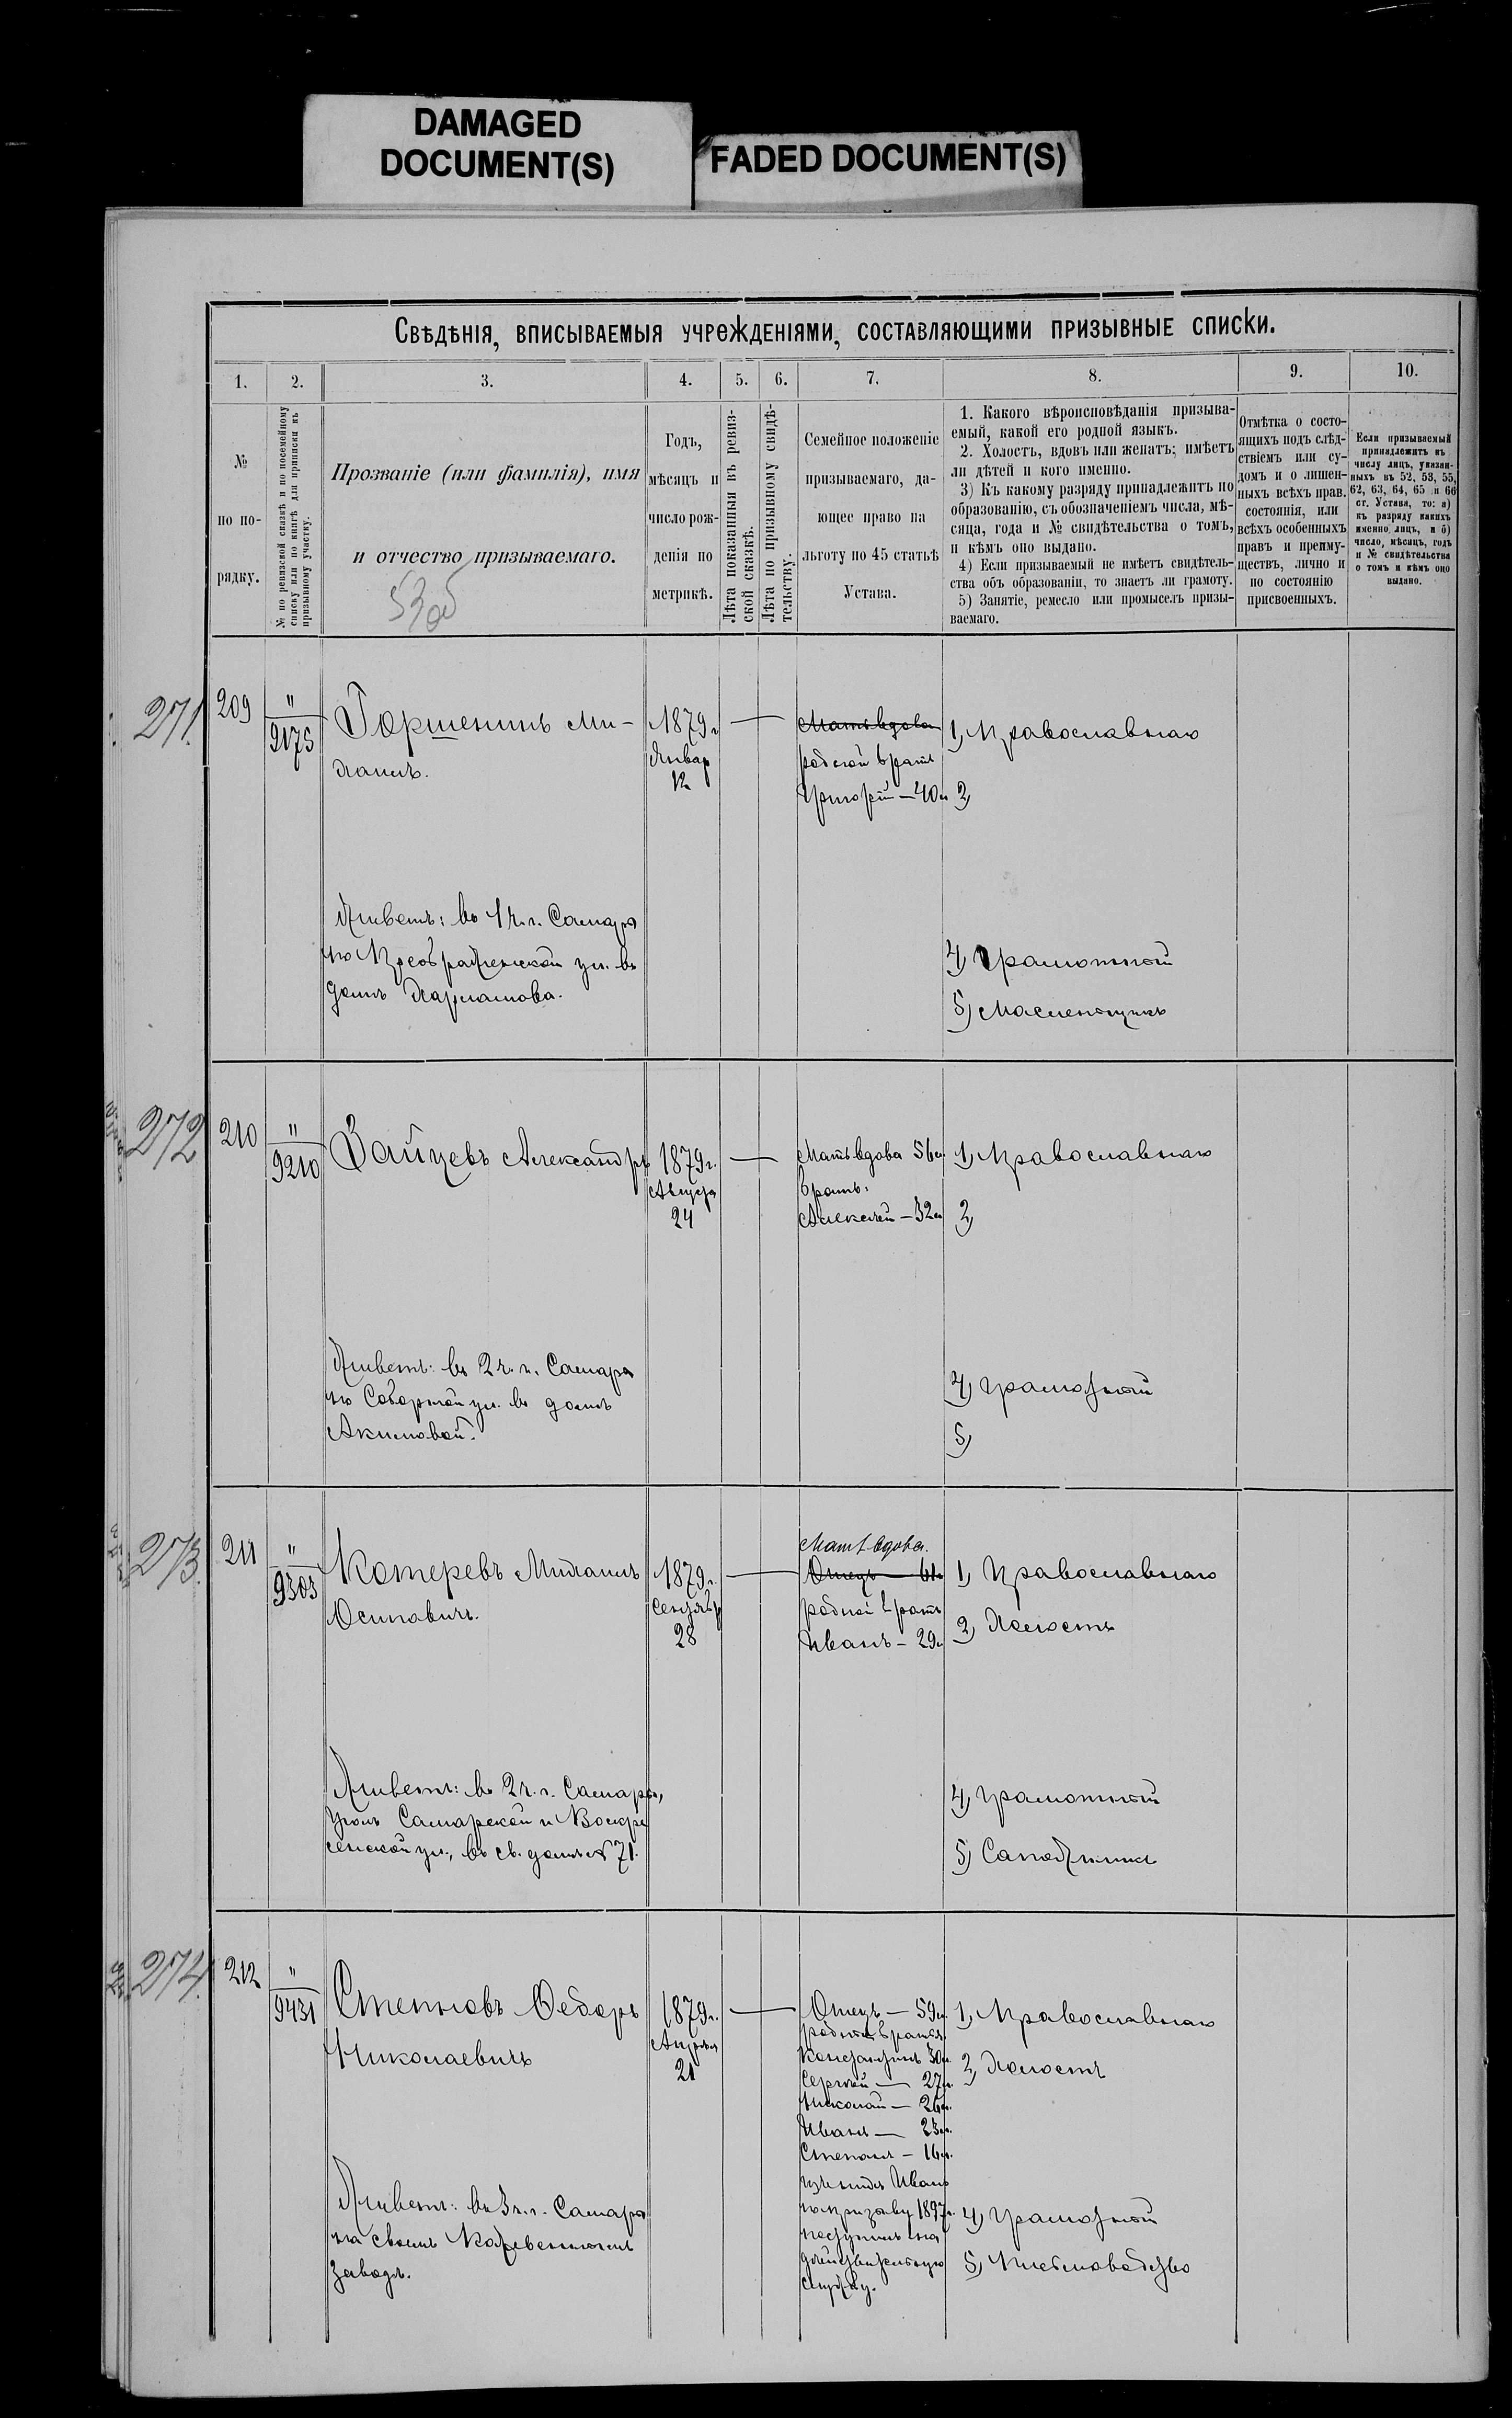 DAMAGED
DOCUMENT(S)
FADED DOCUMENT(S)
Свѣдѣнія, вписываемыя учрежденіями, составляющими призывные списки.
1.
2.
3.
4.
5.
6.
7.
8.
9.
10.
№
по по-
рядку.
№ по ревизской сказкѣ и по посемейному
списку или по книгѣ для приписки къ
призывному участку.
Прозваніе (или фамилія), имя
и отчество призываемаго.
Годъ,
мѣсяцъ и
число рож-
денія по
метрикѣ.
Лѣта показанныя въ ревиз-
ской сказкѣ.
Лѣта по призывному свидѣ-
тельству.
Семейное положеніе
призываемаго, да-
ющее право на
льготу по 45 статьѣ
Устава.
1. Какого вѣроисповѣданія призыва-
емый, какой его родной языкъ.
2. Холостъ, вдовъ или женатъ; имѣетъ
ли дѣтей и кого именно.
3) Къ какому разряду принадлежитъ по
образованію, съ обозначеніемъ числа, мѣ-
сяца, года и № свидѣтельства о томъ,
и кѣмъ оно выдано.
4) Если призываемый не имѣетъ свидѣтель-
ства объ образованіи, то знаетъ ли грамоту.
5) Занятіе, ремесло или промыселъ призы-
ваемаго.
Отмѣтка о состо-
ящихъ подъ слѣд-
ствіемъ или су-
домъ и о лишен-
ныхъ всѣхъ прав.
состоянія, или
всѣхъ особенныхъ
правъ и преиму-
ществъ, лично и
по состоянію
присвоенныхъ.
Если призываемый
принадлежитъ къ
числу лицъ, указан-
ныхъ въ 52, 53, 55,
62, 63, 64, 65 и 66
ст. Устава, то: а)
къ разряду какихъ
именно лицъ, и б)
число, мѣсяцъ, годъ
и № свидѣтельства
о томъ и кѣмъ оно
выдано.
271.
209
"
9175
Горшенинъ Ми-
хаилъ.
1879 г
Январ
12
Мать вдова
родной братъ
Григорій — 40 л
1, Православнаго
2,
Живетъ: въ 1 ч. г. Самара
по Преображенской ул. въ
домѣ
4) Грамотной
5) Масленщикъ
272
210
"
9210
Зайцевъ Александръ
1879 г.
Августа
24
Мать вдова 56 л
братъ:
Алексѣй — 32 л
1, Православнаго
2,
Живетъ: въ 2 ч. г. Самара
по Соборной ул. въ домѣ
Акимовой.
4) грамотной
5)
273.
211
"
9303
Котеревъ Михаилъ
Осиповичъ.
1879 г.
Сентябр
28
Мать вдова.
Отецъ — 61 л
родной братъ
Иванъ — 29 л
1, Православнаго
2, Холостъ
Живетъ: въ 2 ч. г. Самара,
уголъ Самарской и Воскре
сенской ул., въ св. домѣ № 71.
4, грамотной
5) Сапожникъ
274.
212
"
9431
Степновъ Ѳедоръ
Николаевичъ
1879 г.
Апрѣля
21
Отецъ — 59 л.
родные братья
Константинъ 30 л.
Сергѣй — 27 л.
Николай — 26 л.
Иванъ — 23 л.
Степанъ — 16 л.
изъ нихъ Иванъ
по призыву 1897 г.
поступилъ на
дѣйствительную
службу.
1, Православнаго
2, Холостъ
Живетъ: въ 3 ч. г. Самара
на своемъ Кожевенномъ
заводѣ.
4, грамотной
5, Письмоводство